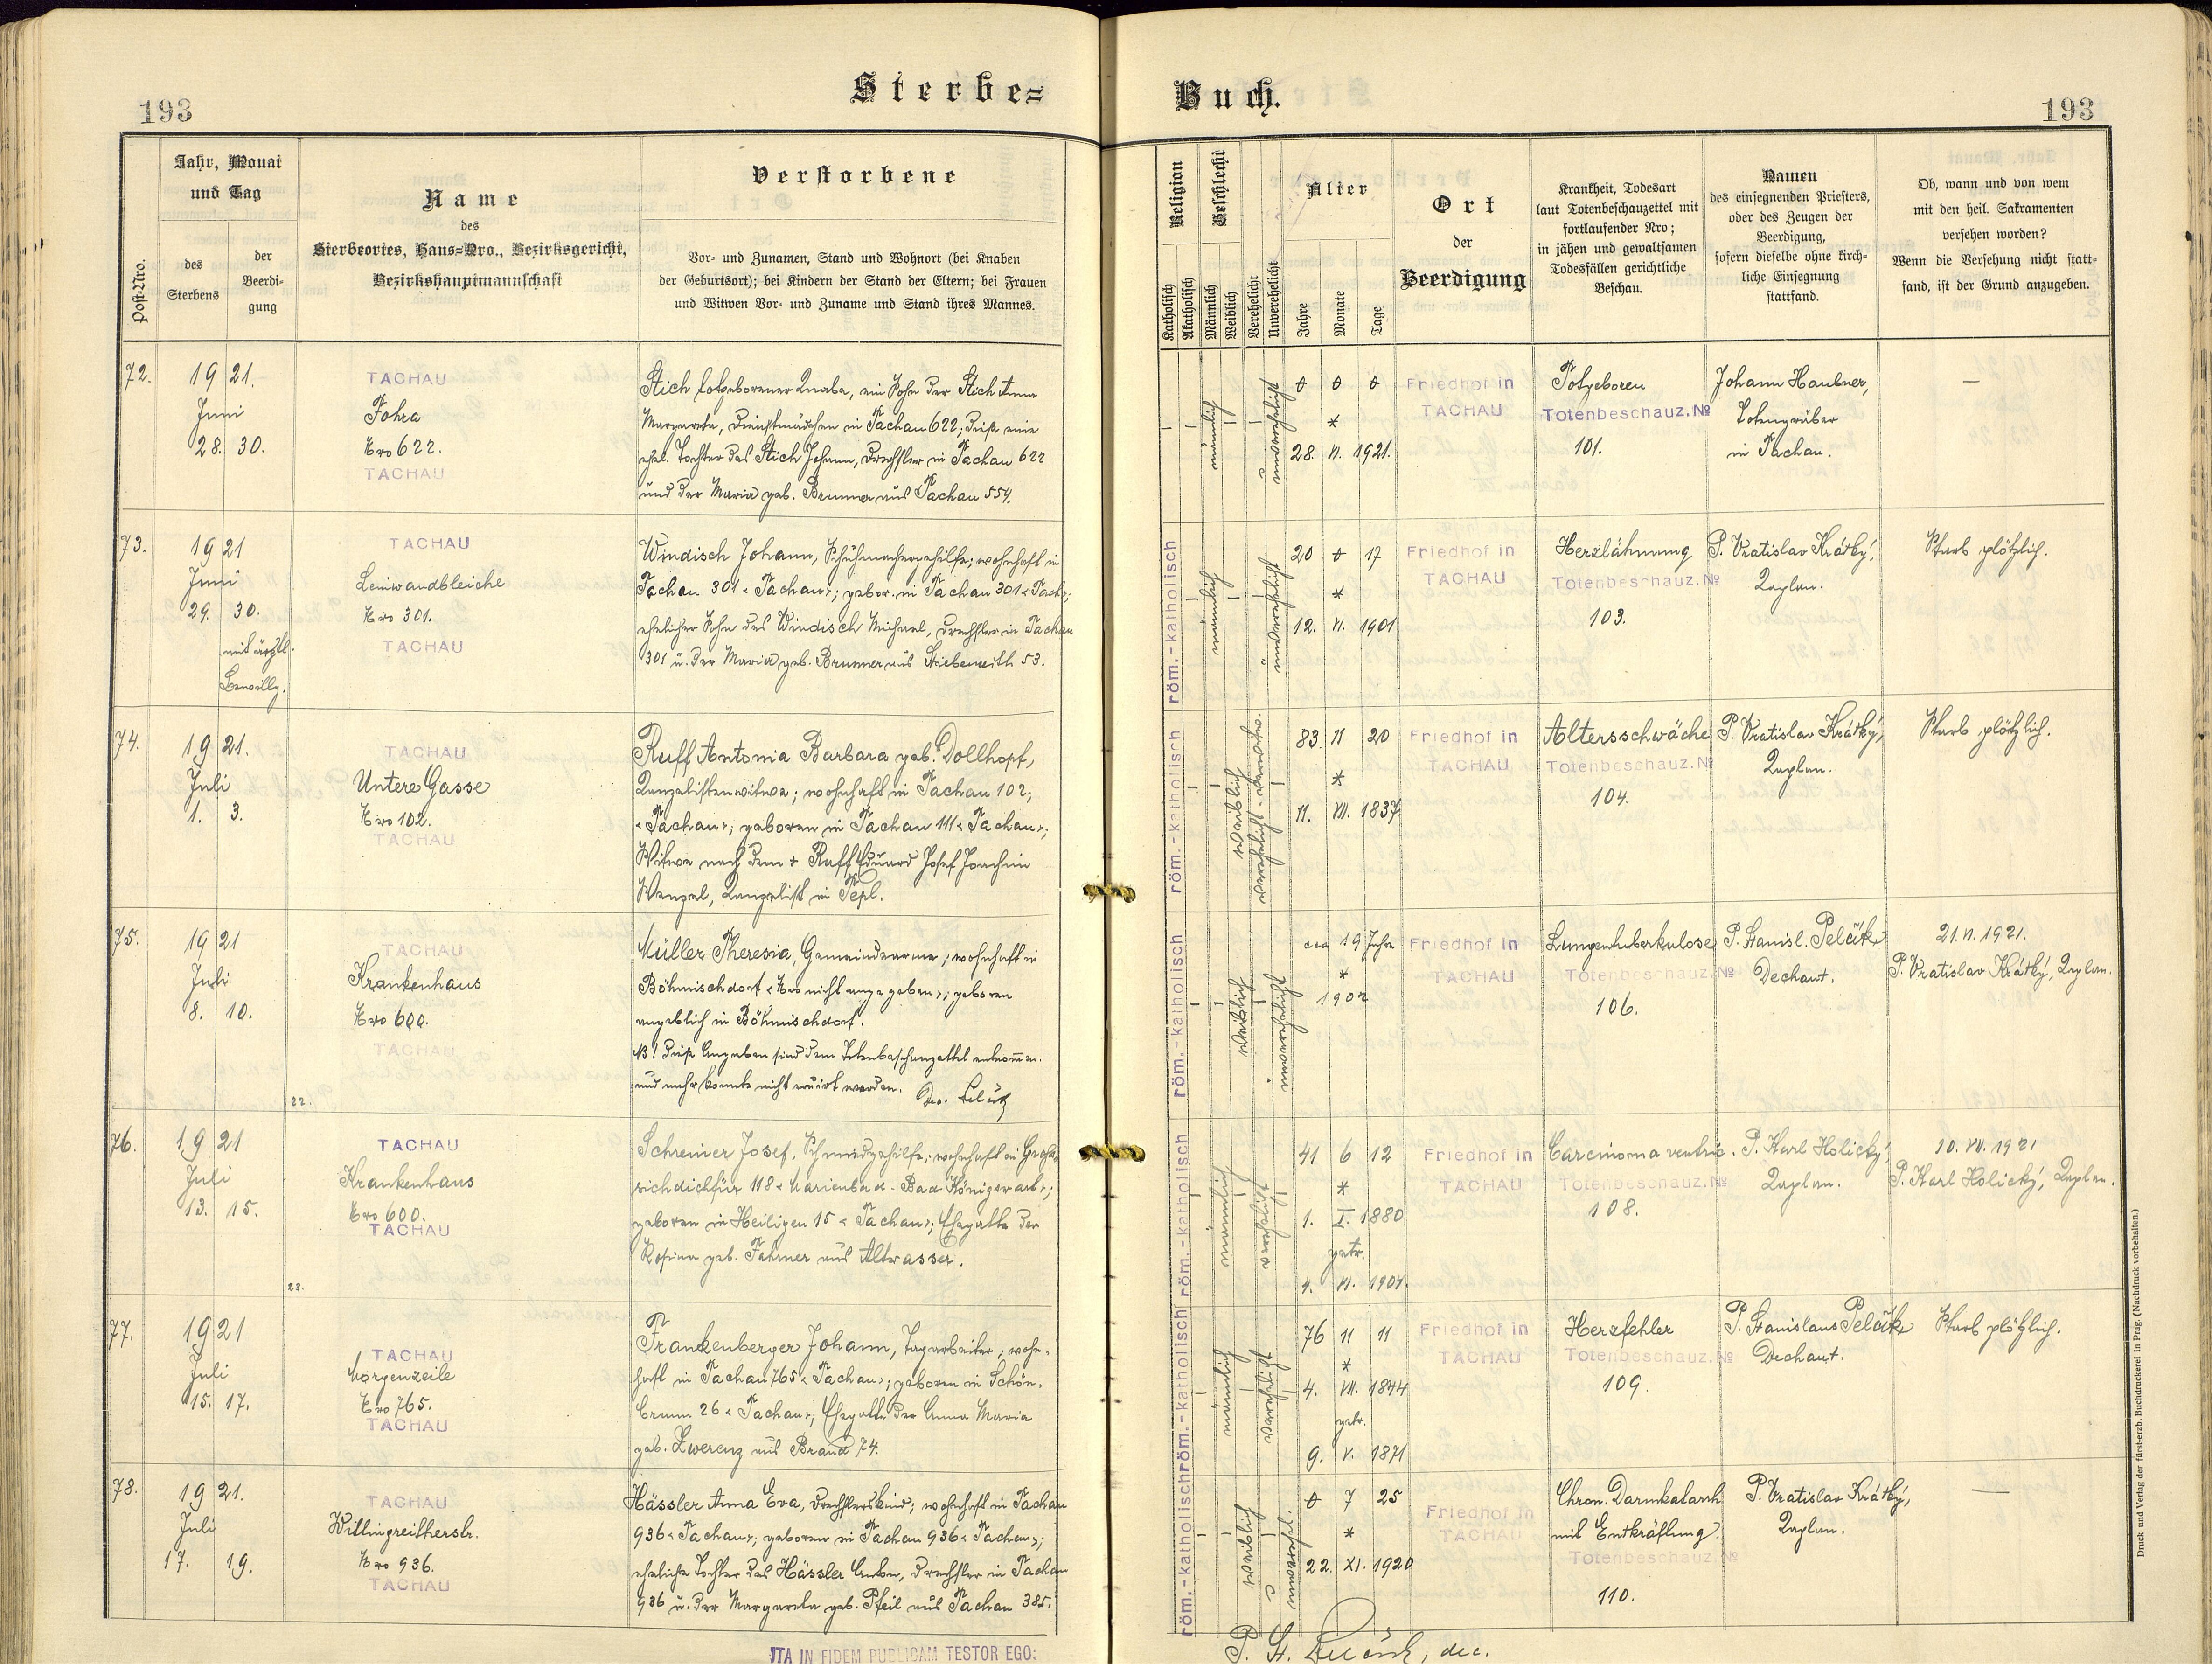 193
Sterbe=
Jahr, Monat
und Tag
Name
des
Sterbeortes, Haus=Nro., Bezirksgericht,
Bezirkshauptmannschaft
Verstorbene
Post=Nro.
des
Sterbens
der
Beerdi-
gung
Vor- und Zunamen, Stand und Wohnort (bei Knaben
der Geburtsort); bei Kindern der Stand der Eltern; bei Frauen
und Witwen Vor- und Zuname und Stand ihres Mannes.
72.
1921.
Juni
28. 30.
TACHAU
Fohra
Nro 622.
TACHAU
Stich totgeborener Knabe, ein Sohn der Stich Anna
Margareta, Dienstmädchen in Tachau 622; diese eine
ehel. Tochter des Stich Johann, Drechsler in Tachau 622
und der Maria geb. Brunner aus Tachau 554.
73.
1921
Juni
29. 30.
mit ärztl.
Bewillg.
TACHAU
Leinwandbleiche
Nro 301.
TACHAU
Windisch Johann, Schuhmachergehilfe; wohnhaft in
Tachau 301 "Tachau"; gebor. in Tachau 301 "Tach";
ehelicher Sohn des Windisch Michael, Drechsler in Tachau
301 u. der Maria geb. Brunner aus Stiebenreith 53.
74.
1921.
Juli
1. 3.
TACHAU
Untere Gasse
Nro 102.
TACHAU
Ruff Antonia Barbara geb. Dollhopf,
Kanzelistenwitwe; wohnhaft in Tachau 102;
"Tachau"; geboren in Tachau 111 "Tachau";
Witwe nach dem + Ruff Eduard Josef Joachim
Wenzel, Kanzelist in Tepl.
75.
1921
Juli
8. 10.
TACHAU
Krankenhaus
Nro 600.
TACHAU
22.
Müller Theresia, Gemeindearme; wohnhaft in
Böhmischdorf "Nro nicht angegeben"; geboren
angeblich in Böhmischdorf.
NB! Diese Angaben sind dem Totenbeschauzettel entnomm.
und mehr konnte nicht eruirt werden.
76.
1921
Juli
13. 15.
TACHAU
Krankenhaus
Nro 600.
TACHAU
23.
Schreier Josef, Schmiedgehilfe; wohnhaft in
118 "Marienbad - Bad Königswart";
geboren in Heiligen 15 "Tachau"; Ehegatte der
Rosina geb. Fahrner aus Altwasser.
77.
1921
Juli
15. 17.
TACHAU
Morgenzeile
Nro 765.
TACHAU
Frankenberger Johann, Tagarbeiter; wohn-
haft in Tachau 765 "Tachau"; geboren in Schön-
brunn 26 "Tachau"; Ehegatte der Anna Maria
geb. Zwerenz aus Brand 74.
78.
1921.
Juli
17. 19.
TACHAU
Willingreitherstr.
Nro 936.
TACHAU
Hässler Anna Eva, Drechslerskind; wohnhaft in Tachau
936 "Tachau"; geboren in Tachau 936 "Tachau";
eheliche Tochter des Hässler Anton, Drechsler in Tachau
936 u. der Margareta geb. Pfeil aus Tachau 385.
ITA IN FIDEM PUBLICAM TESTOR EGO:
Buch.
193
Religion
Geschlecht
Katholisch
Akatholisch
Männlich
Weiblich
Verehelicht
Unverehelicht
Alter
Jahre
Monate
Tage
Ort
der
Beerdigung
Krankheit, Todesart
laut Totenbeschauzettel mit
fortlaufender Nro;
in jähen und gewaltsamen
Todesfällen gerichtliche
Beschau.
Namen
des einsegnenden Priesters,
oder des Zeugen der
Beerdigung,
sofern dieselbe ohne kirch-
liche Einsegnung
stattfand.
Ob, wann und von wem
mit den heil. Sakramenten
versehen worden?
Wenn die Versehung nicht statt-
fand, ist der Grund anzugeben.
männlich
unverehelicht
0 0 0
*
28. VI. 1921.
Friedhof in
TACHAU
Totgeboren
Totenbeschauz. No
101.
Johann Haubner,
Totengräber
in Tachau.
—
röm.-katholisch
männlich
unverehelicht
20 0 17
*
12. VI. 1901
Friedhof in
TACHAU
Herzlähmung
Totenbeschauz. No
103.
P. Vratislav Krátký,
Kaplan.
Starb plötzlich.
röm.-katholisch
weiblich
verehelicht - verwitw.
83 11 20
*
11. VII. 1837
Friedhof in
TACHAU
Altersschwäche
Totenbeschauz. No
104.
P. Vratislav Krátký,
Kaplan.
Starb plötzlich.
röm.-katholisch
weiblich
unverehelicht
cca 19 Jahre
*
1902
Friedhof in
TACHAU
Lungentuberkulose
Totenbeschauz. No
106.
P. Stanisl. Pelčík
Dechant.
21. VI. 1921.
P. Vratislav Krátký, Kaplan.
röm.-katholisch
männlich
verehelicht
41 6 12
*
1. I. 1880
getr.
4. VI. 1904.
Friedhof in
TACHAU
Carcinoma ventric.
Totenbeschauz. No
108.
P. Karl Holický,
Kaplan.
10. VII. 1921
P. Karl Holický, Kaplan.
röm.-katholisch
männlich
verehelicht
76 11 11
*
4. VII. 1844
getr.
9. V. 1871
Friedhof in
TACHAU
Herzfehler
Totenbeschauz. No
109.
P. Stanislaus Pelčík
Dechant.
Starb plötzlich.
röm.-katholisch
weiblich
unverehel.
0 7 25
*
22. XI. 1920
Friedhof in
TACHAU
Chron. Darmkatarrh
mit Entkräftung.
Totenbeschauz. No
110.
P. Vratislav Krátký,
Kaplan.
—
P. St. Pelčík, dec.
Druck und Verlag der fürst-erzb. Buchdruckerei in Prag. (Nachdruck vorbehalten.)